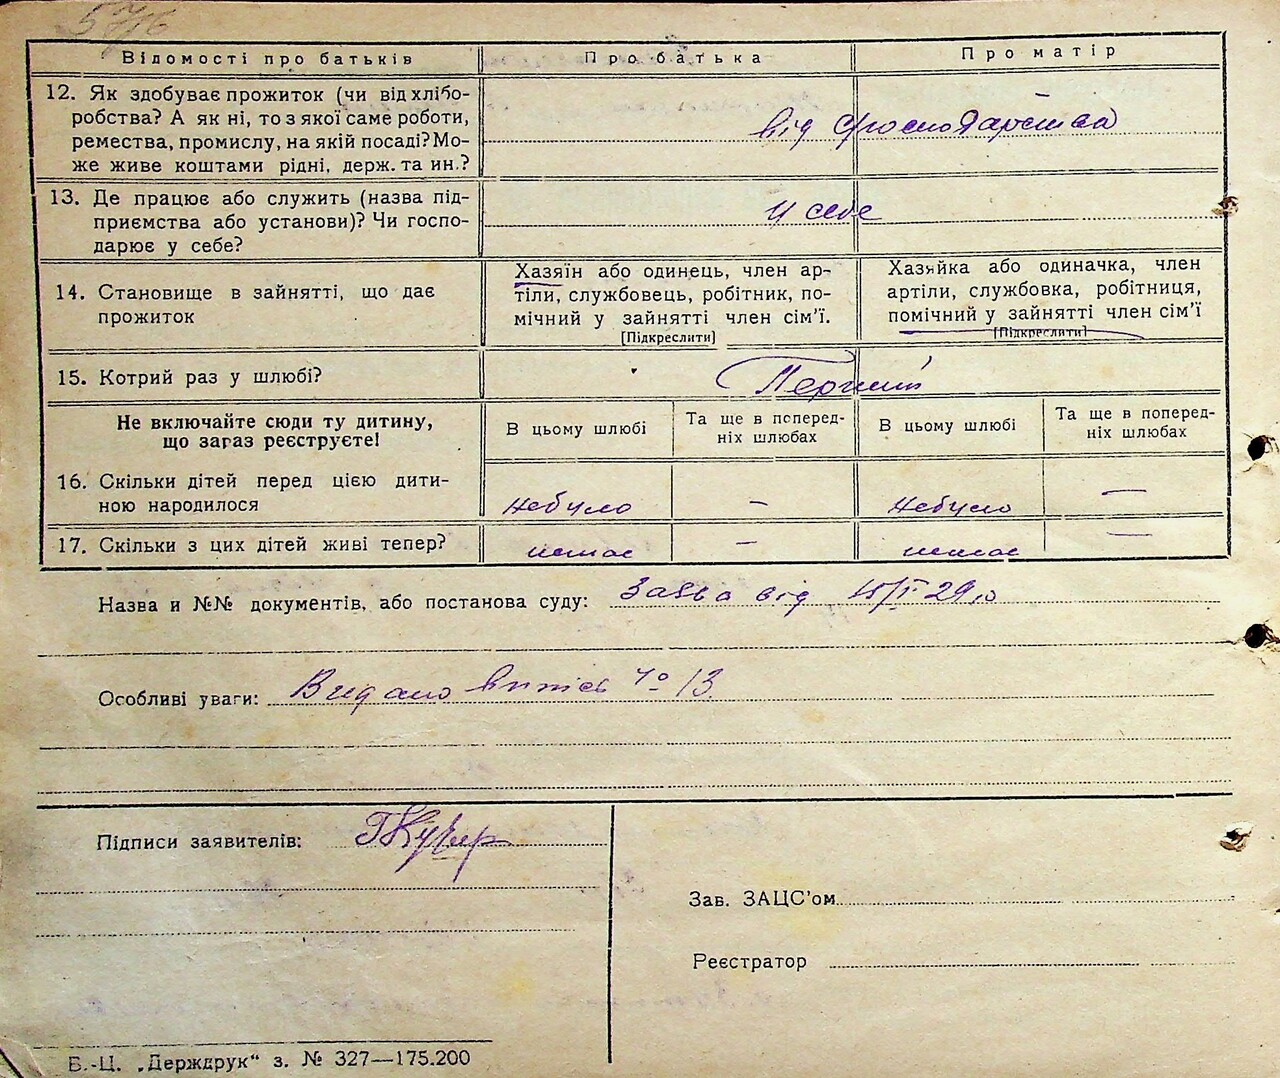 57/6
Відомості про батьків
Про батька
Про матір
12. Як здобуває прожиток (чи від хлібо-
робства? А як ні, то з якої саме роботи,
ремества, промислу, на якій посаді? Мо-
же живе коштами рідні, держ. та ин.?
від господарства
13. Де працює або служить (назва під-
приємства або установи)? Чи госпо-
дарює у себе?
у себе
14. Становище в зайнятті, що дає
прожиток
Хазяїн або одинець, член ар-
тіли, службовець, робітник, по-
мічний у зайнятті член сім'ї.
[Підкреслити]
Хазяйка або одиначка, член
артіли, службовка, робітниця,
помічний у зайнятті член сім'ї
[Підкреслити]
15. Котрий раз у шлюбі?
Перший
Не включайте сюди ту дитину,
що зараз реєструєте!
В цьому шлюбі
Та ще в поперед-
ніх шлюбах
В цьому шлюбі
Та ще в поперед-
ніх шлюбах
16. Скільки дітей перед цією дити-
ною народилося
небуло
–
небуло
–
17. Скільки з цих дітей живі тепер?
немає
–
немає
–
Назва и №№ документів, або постанова суду: Заява від 15/I 29
Особливі уваги: Видано випись № 13
Підписи заявителів:
Зав. ЗАЦС'ом
Реєстратор
Б.-Ц. „Держдрук“ з. № 327—175.200